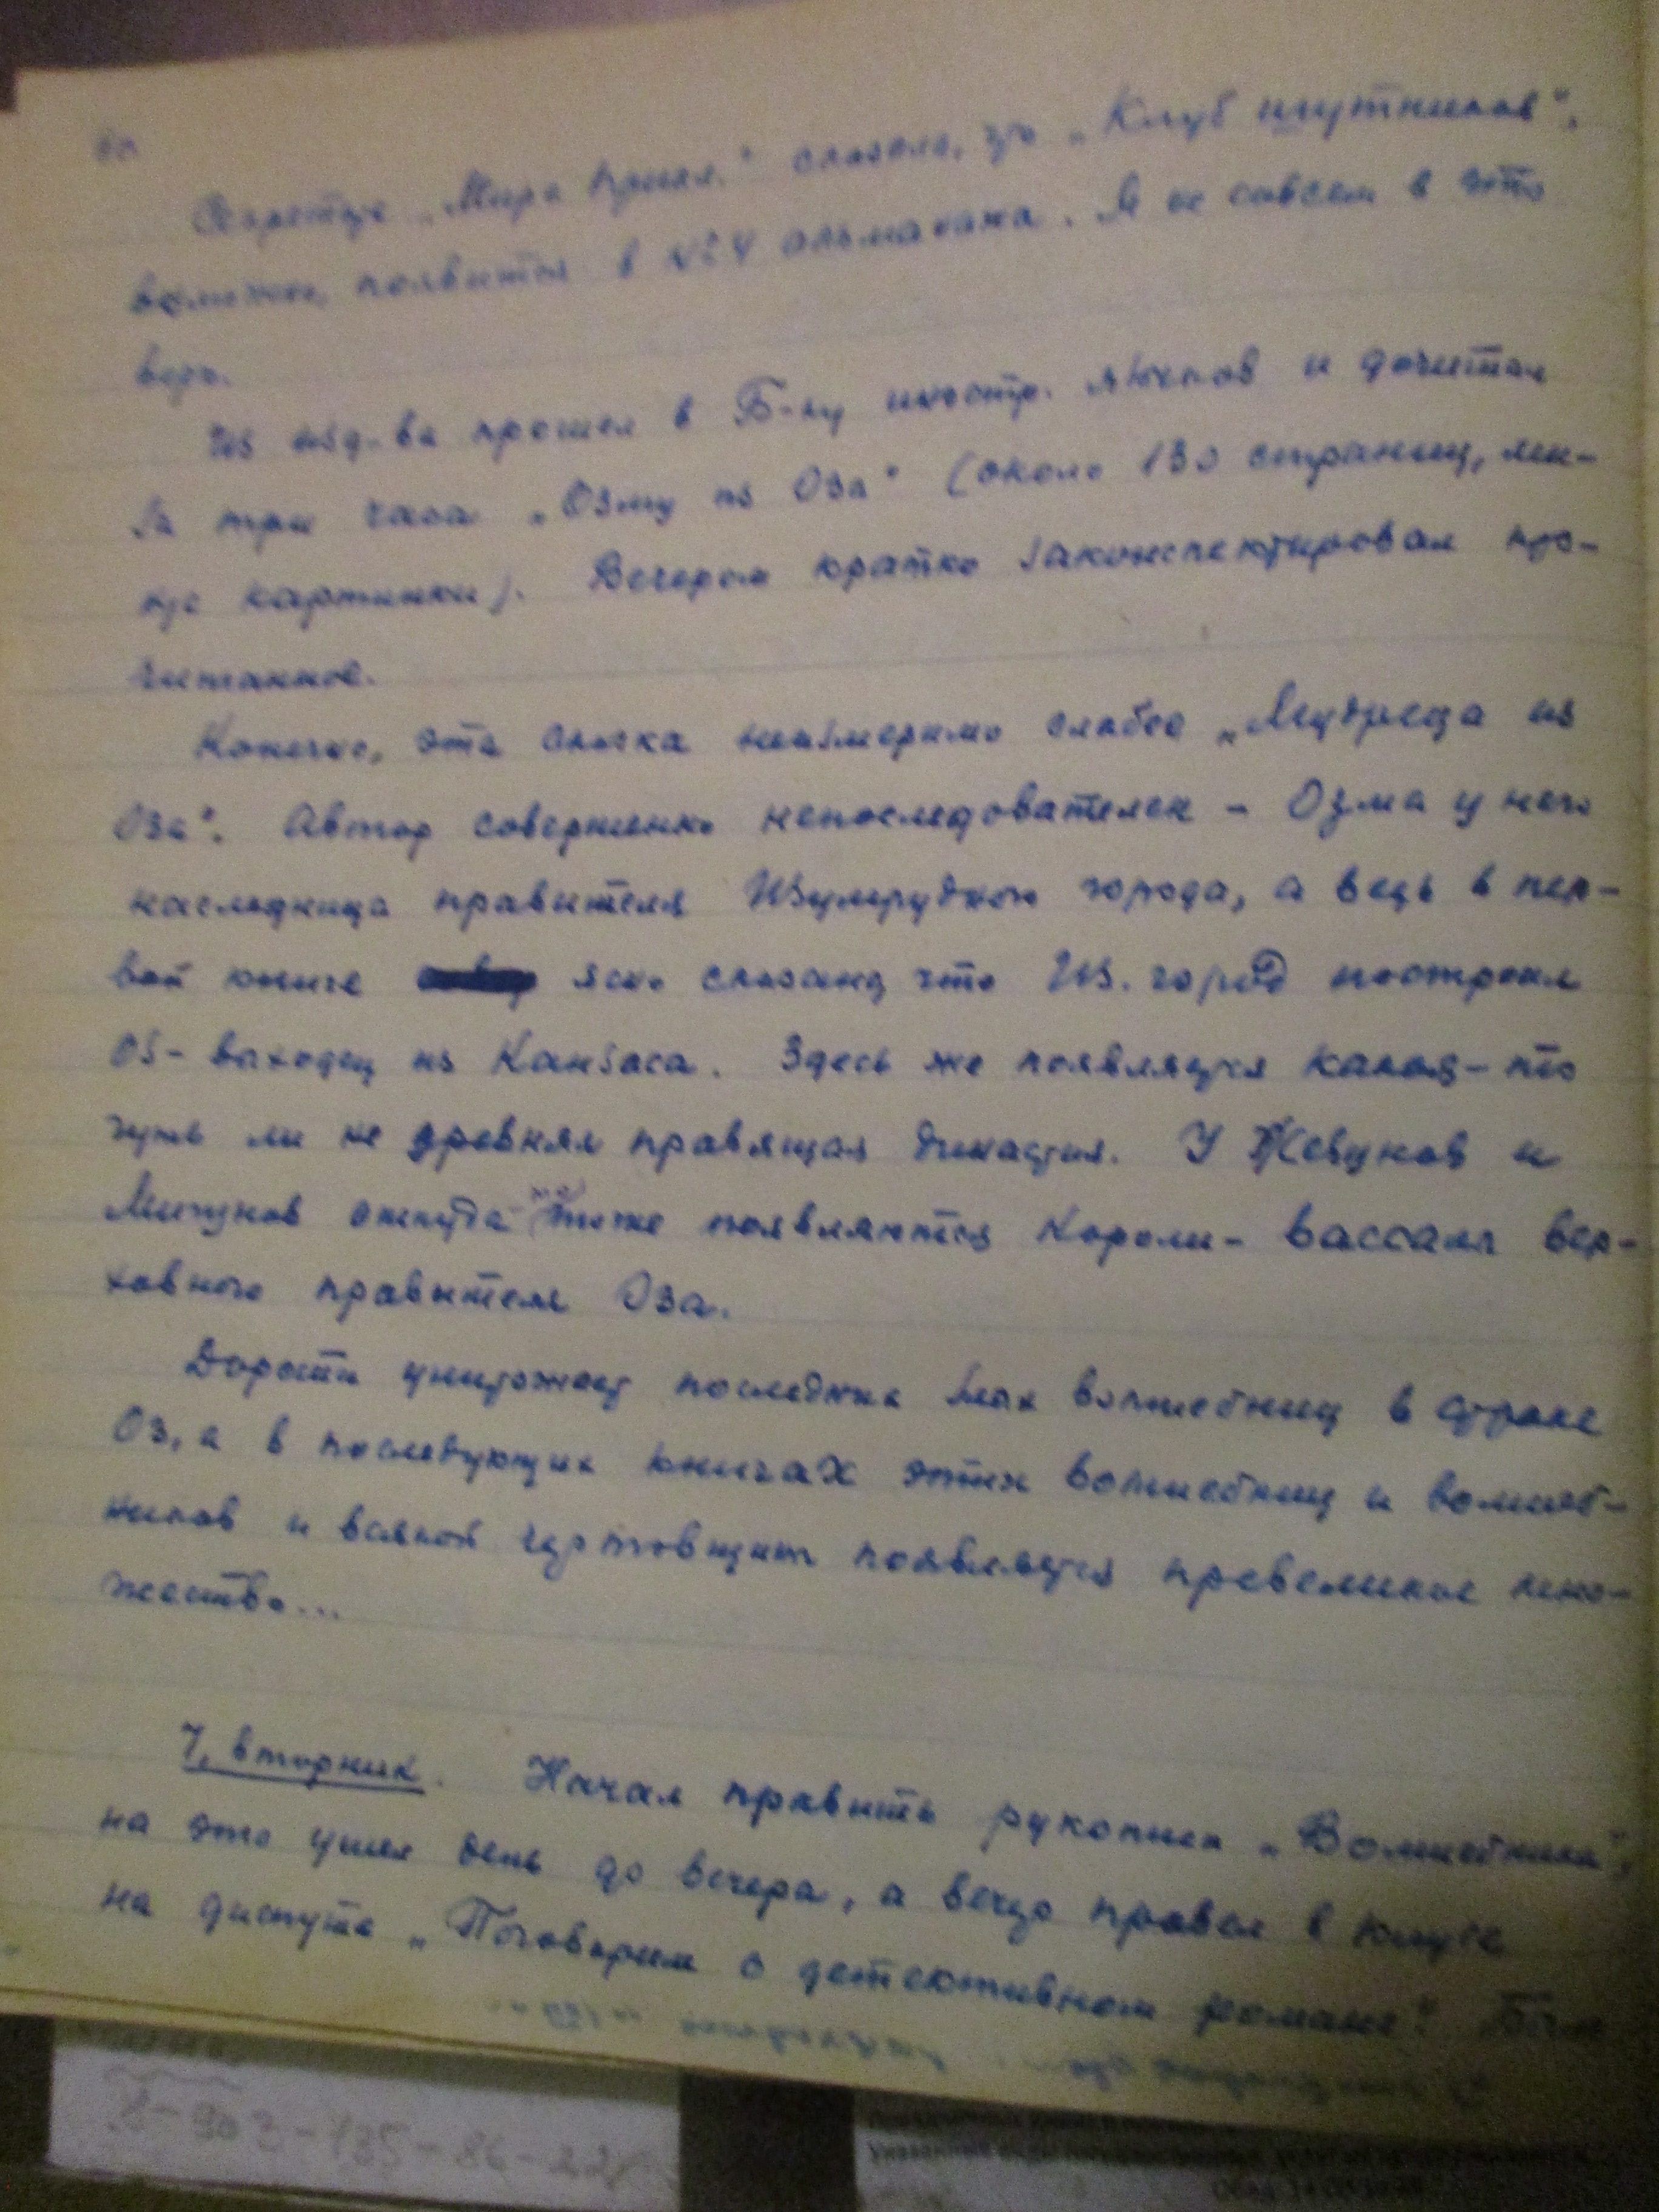 60
Секретарь „Мира Прикл." сказала, что „Клуб шутников",
возможно, появится в №4 альманаха. Я не совсем в это
верю.
Из изд-ва прошел в Б-ку иностр. языков и дочитал
за три часа „Озму из Оза" (около 130 страниц,
картинки). Вечером кратко законспектировал про-
читанное.
Конечно, эта сказка неизмеримо слабее „Мудреца из
Оза". Автор совершенно непоследователен – Озма у него
наследница правителя Изумрудного города, а ведь в пер-
вой книге ясно сказано, что Из. город построил
Оз – выходец из Канзаса. Здесь же появляется какая-то
чуть ли не древняя правящая династия. У Жевунов и
Мигунов откуда-то тоже появляются короли – вассалы вер-
ховного правителя Оза.
Дороти уничтожает последних злых волшебниц в стране
Оз, а в последующих книгах этих волшебниц и волшеб-
ников и всякой чертовщины появляется превеликое мно-
жество...
7, вторник. Начал править рукопись „Волшебника",
на это ушел день до вечера, а вечер провел в клубе
на диспуте „Поговорим о детективном романе". Было
8-903-135-86-22